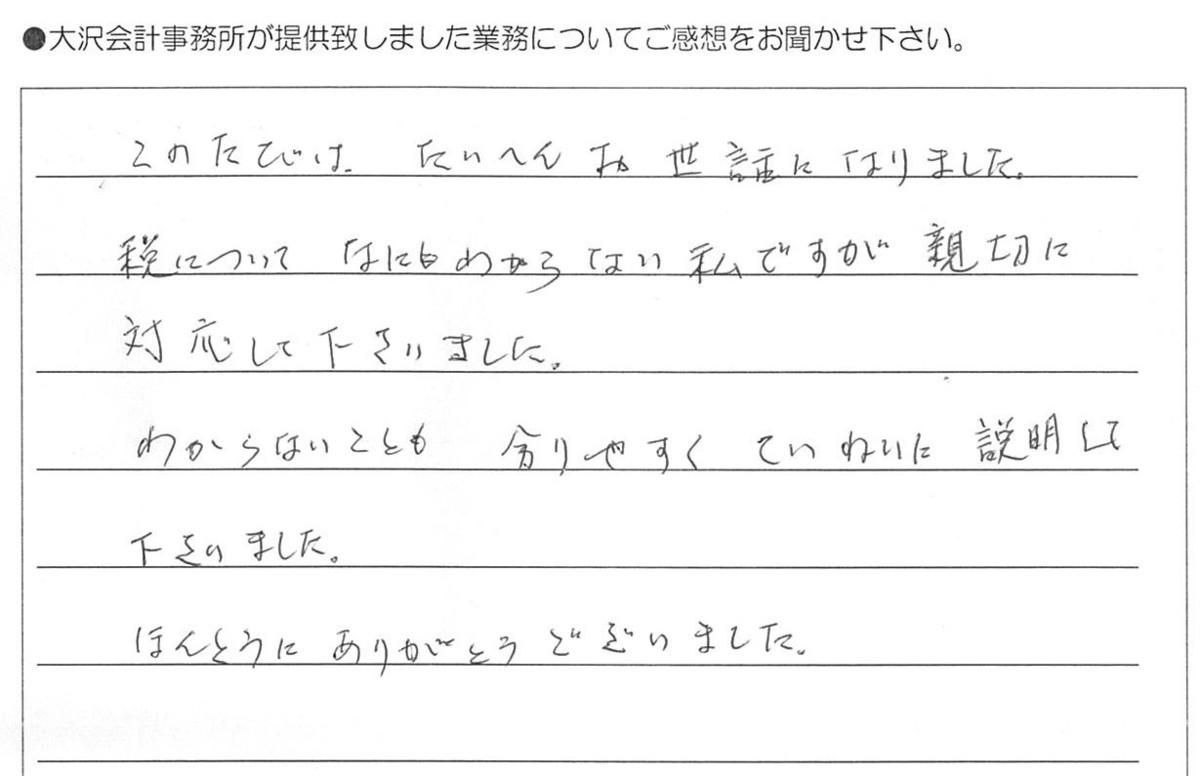 ●大沢会計事務所が提供致しました業務についてご感想をお聞かせ下さい。
このたびは、たいへんお世話になりました。
税について なにもわからない私ですが 親切に
対応して下さいました。
わからないことも 分りやすく ていねいに 説明して
下さいました。
ほんとうに ありがとう ございました。